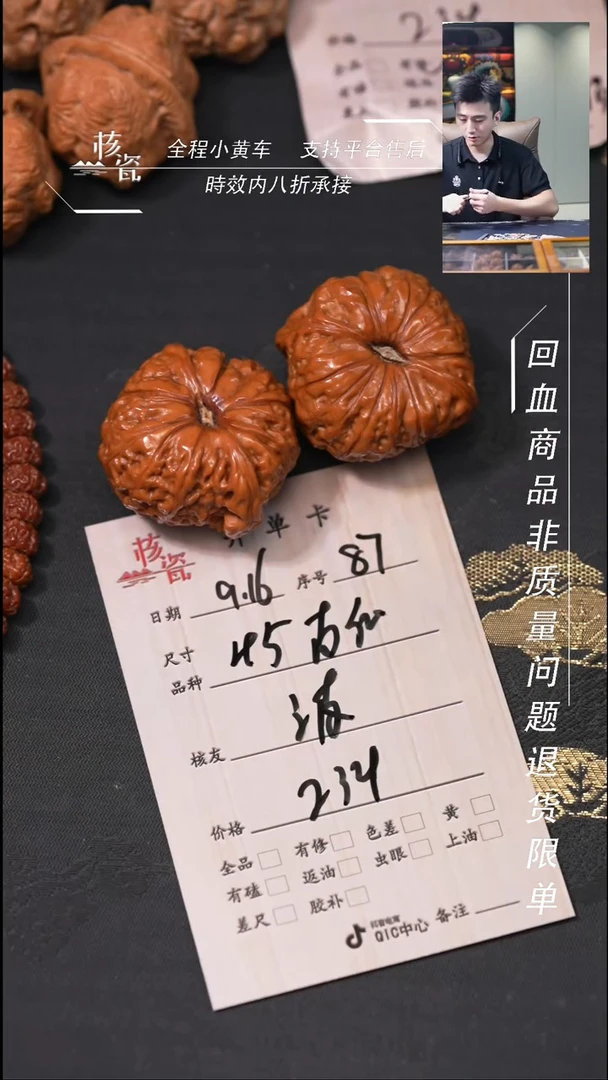 234
核瓷
全程小黄车 支持平台售后
時效内八折承接
回血商品非质量问题退货限单
核瓷
开单卡
日期 9.16 序号 87
尺寸 45
品种
核友
价格 234
全品 有修 色差 黄
有磕 返油 虫眼 上油
差尺 胶补
抖音电商
QIC中心 备注